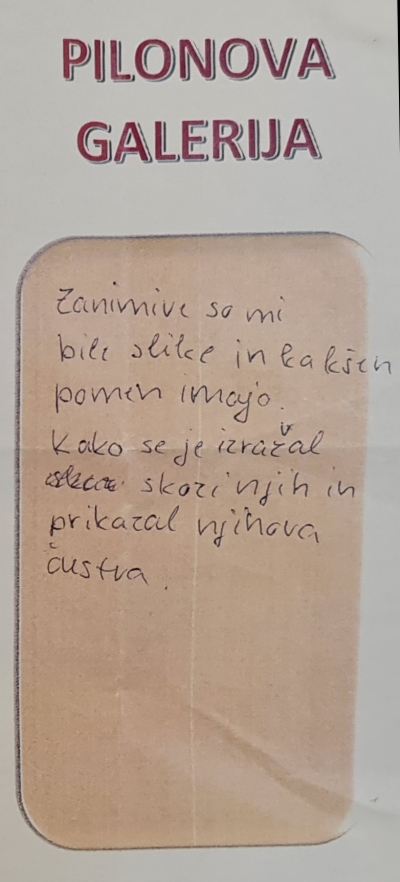 PILONOVA
GALERIJA
Zanimive so mi
bile slike in kakšen
pomen imajo.
Kako se je izražal
skozi njih in
prikazal njihova
čustva.